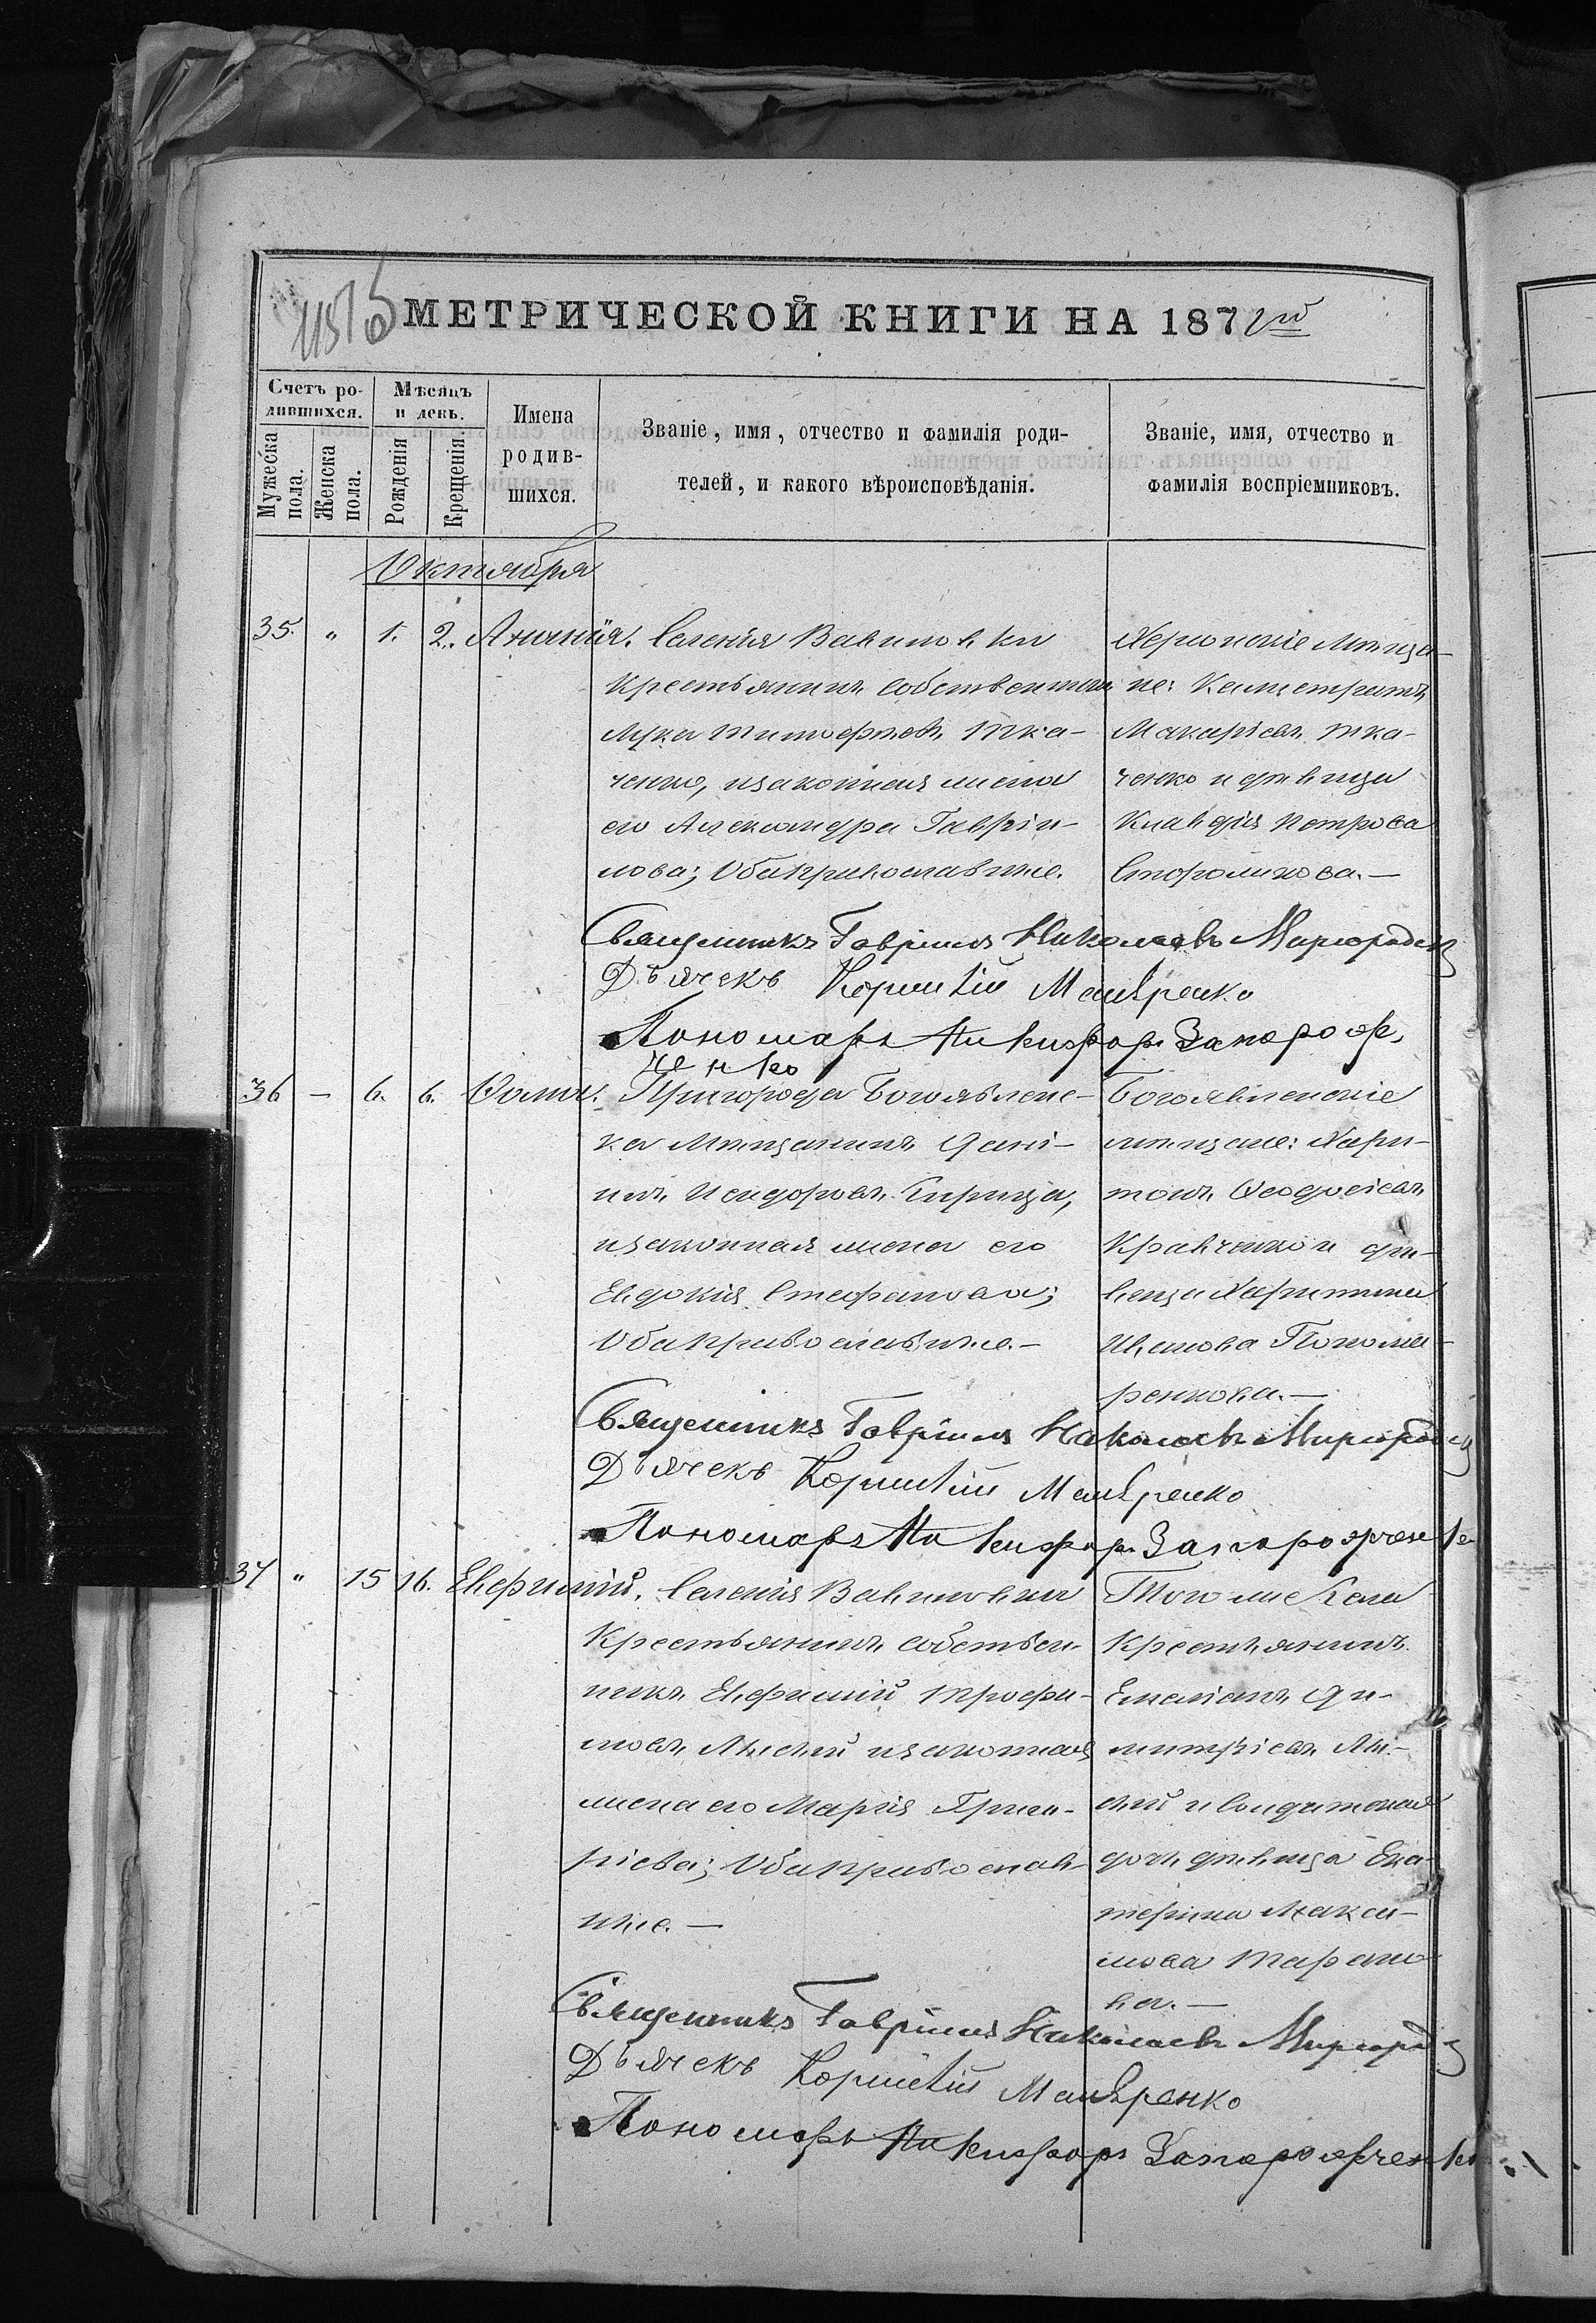 МЕТРИЧЕСКОЙ КНИГИ НА 187
Счетъ ро-
дившихся.
Мужеска
пола.
Женска
пола.
Мѣсяцъ
и день.
Рожденія
Крещенія.
Имена
родив-
шихся.
Званіе, имя, отчество и фамилія роди-
телей, и какого вѣроисповѣданія.
Званіе, имя, отчество и
фамилія воспріемниковъ.
Октября
35. „ 1. 2. Ананія.
Селенія Вавиловки
крестьянинъ собственникъ
Лука Тимофѣевъ Тка-
ченко, и законная жена
его Александра Гаврiи-
лова; Оба православные.
Херсонскіе Мѣща-
не: Калистратъ
Макаріевъ Тка-
ченко и дѣвица
Клавдія Петрова
Сторожкова.—
Священникъ Гавріилъ Николаевъ Миргородск
Дьячекъ Корнилій Маляренко
Пономарь Никифоръ Запорож,
ченко
36 – 6. 6. Ѳома.
Пригорода Богоявленс-
ка Мѣщанинъ Дані-
илъ Исидоровъ Кирица,
и законная жена его
Евдокія Стефанова;
Оба православные.—
Богоявленскіе
мѣщане: Хари-
тонъ Ѳеодосіевъ
Кравченко и дѣ-
вица Харитина
Иванова Понома-
ренкова.—
Священникъ Гавріилъ Николаевъ Миргородск
Дьячекъ Корнилій Маляренко
Пономарь Никифоръ Запорожченко
37 „ 15 16. Евфимій.
Селенія Вавиловки
Крестьянинъ собствен-
никъ Евфимій Трофи-
мовъ Лысый и законная
жена его Марія Григо-
ріева; Оба православ-
ные.—
Того же села
Крестьянинъ
Емеліанъ Ди-
митріевъ Лы-
сый и Солдатская
дочь дѣвица Ека-
терина Макси-
мова Тарано-
ва.—
Священникъ Гавріилъ Николаевъ Миргород
Дьячекъ Корнилій Маляренко
Пономарь Никифоръ Запорожченко